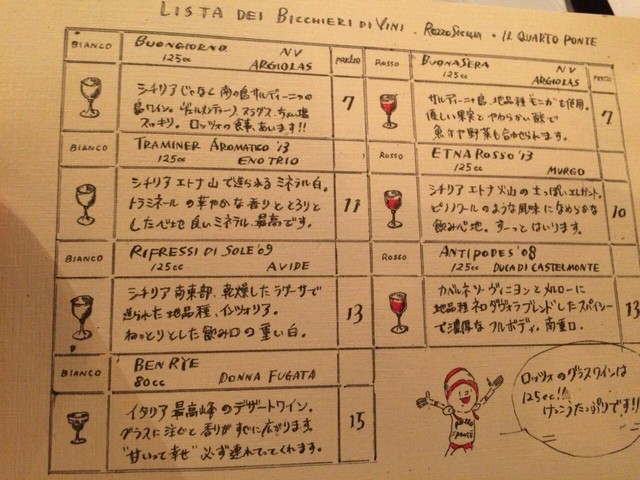 LISTA DEI BICCHIERI DI VINI . ROZZO SICILIA . IL QUARTO PONTE
BIANCO
BUONGIORNO NV
125cc ARGIOLAS
PREZZO
シチリアじゃなく南の島サルディーニャの
島ワイン。ヴェルメンティーノ、
スッキリ。ロッツォの食事、あいます!!
7
BIANCO
TRAMINER AROMATICO '13
125cc ENOTRIO
シチリア エトナ山で造られるミネラル白。
トラミネールの華やかな香りととろりと
した 良いミネラル、最高です。
11
BIANCO
RIFRESSI DI SOLE '09
125cc AVIDE
シチリア南東部、乾燥したラグーサで
造られた地品種、インツォリア。
ねっとりとした飲み口の重い白。
13
BIANCO
BEN RYE
80cc DONNA FUGATA
イタリア最高峰のデザートワイン。
グラスに注ぐと香りがすぐに広がります。
"甘いって幸せ"必ず連れてってくれます。
15
ROSSO
BUONASERA NV
125cc ARGIOLAS
PREZZO
サルディーニャ島、地品種"モニカ"を使用。
優しい果実とやわらかい酸で
魚々や野菜も合わせられます。
7
ROSSO
ETNA ROSSO '13
125cc MURGO
シチリア エトナ火山の土っぽいエレガント。
ピノノワールのような風味になめらかな
飲み心地。ずーっとはいります。
10
ROSSO
ANTIPODES '08
125cc DUCA DI CASTELMONTE
カベルネソーヴィニヨンとメルローに
地品種ネロダヴォラブレンドしたスパイシー
で濃厚なフルボディ。南重口。
13
ロッツォのグラスワインは
125cc!!
けっこうたっぷりです!!